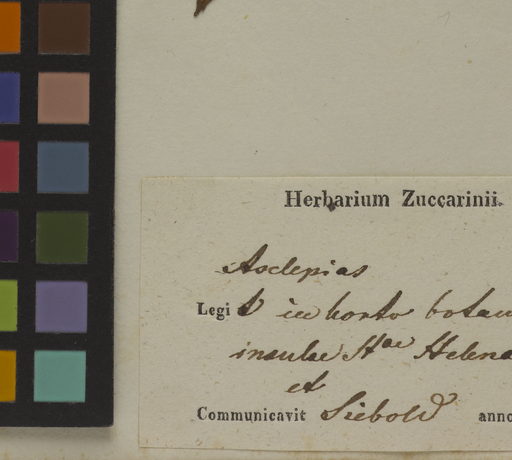 Herbarium Zuccarinii.
Asclepias
Legi in horto botan
insulae Stae Helena
et
Communicavit Siebold anno